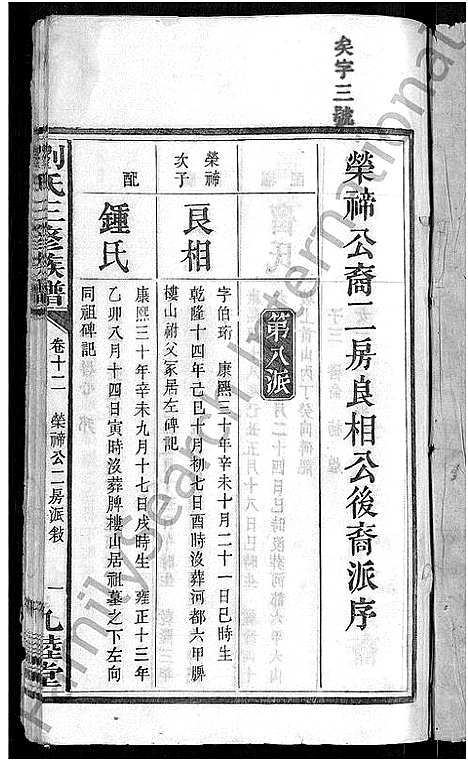 矣字三號
榮禘公裔二房良相公後裔派序
第八派
榮禘次子
良相
字伯珩 康熙三十年辛未十月二十一日巳時生
乾隆十四年己巳十月初七日酉時沒葬河都六甲脾
樓山祔父冢居左碑記
配
鍾氏
康熙三十年辛未九月十七日戌時生 雍正十三年
乙卯八月十四日寅時沒葬脾樓山居祖墓之下左向
同祖碑記
劉氏三修族譜
卷十二 榮禘公二房派敘
一
九睦堂
FamilySearch International